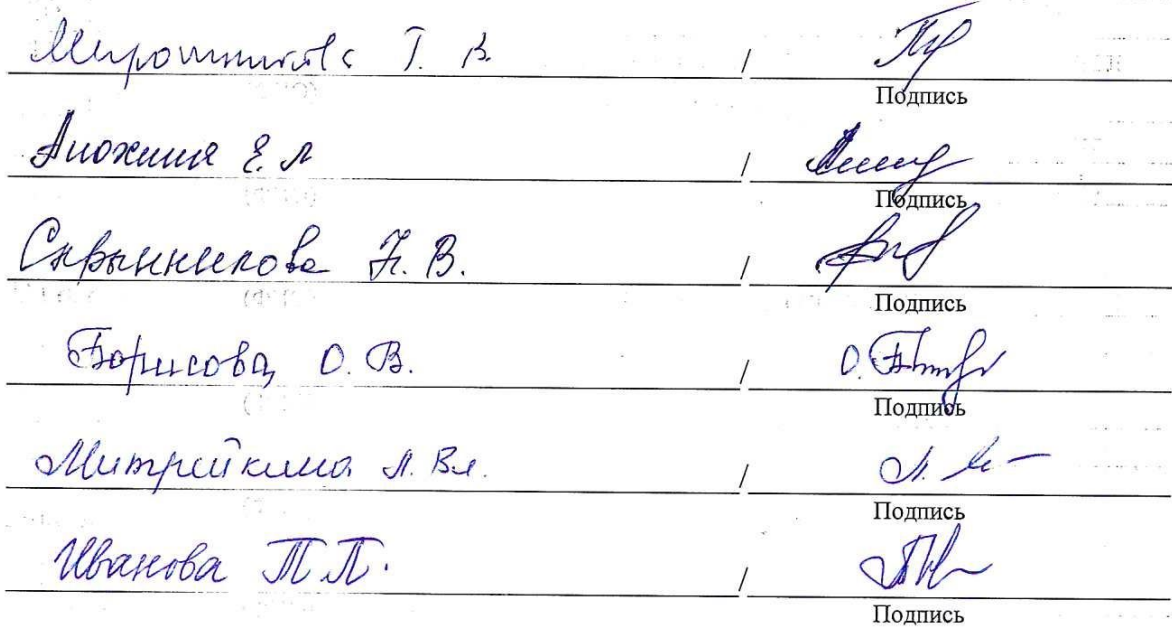 Мирошникова Т. В. /
Подпись
Анохина Е. Л /
Подпись
Скрынникова Н. В. /
Подпись
Борисова О. В. /
Подпись
Митрейкина Л. Вл. /
Подпись
Иванова Т.П. /
Подпись